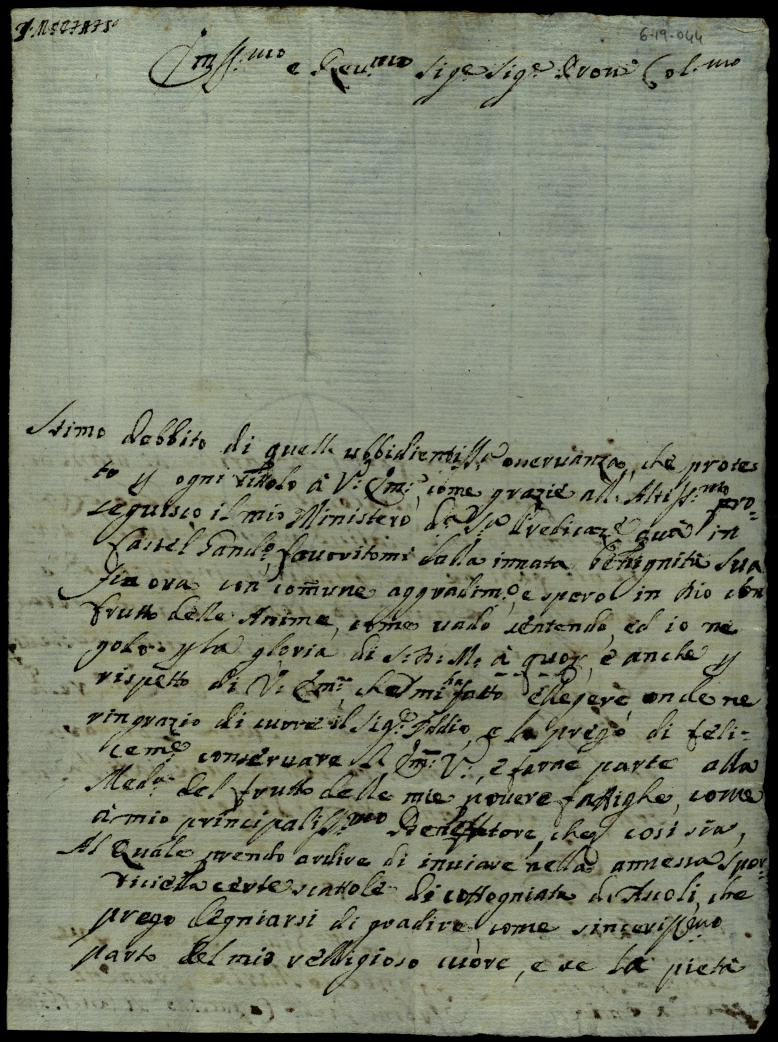 6-19-044
e Reu.mo Sig.e Sig.e Pron.e Col.mo
Stimo debbito di quell. ubbidientiss. osseruanza, che protes
to p ogni tittolo à V. Em., come grazie all. Altiss.mo pro-
seguisco il mio Ministero della Predicaz.e quà in
Castel Gand.o, fauoritomi dalla innata benignità sua
fin ora con comune aggradim.o, e spero in Dio con
frutto delle Anime, come uado sentendo, ed io ne
godo p la gloria di S. D. M. à quor, e anche p
rispetto di V. Em., che mi ha fatto essere, onde ne
ringrazio di cuore il Sig.e Iddio, e lo prego di feli-
cem.e conseruare l' Em. V., e farne parte alla
Med.a del frutto delle mie pouere fattighe, come
à mio principaliss.mo Benefattore, che così sia,
Al Quale prendo ardire di inuiare nella annessa Spor-
ticiella certe scattole di cottogniata di Ascoli, che
prego degniarsi di gradire come sinceriss.mo
parto del mio relligioso cuòre, e se la pietà